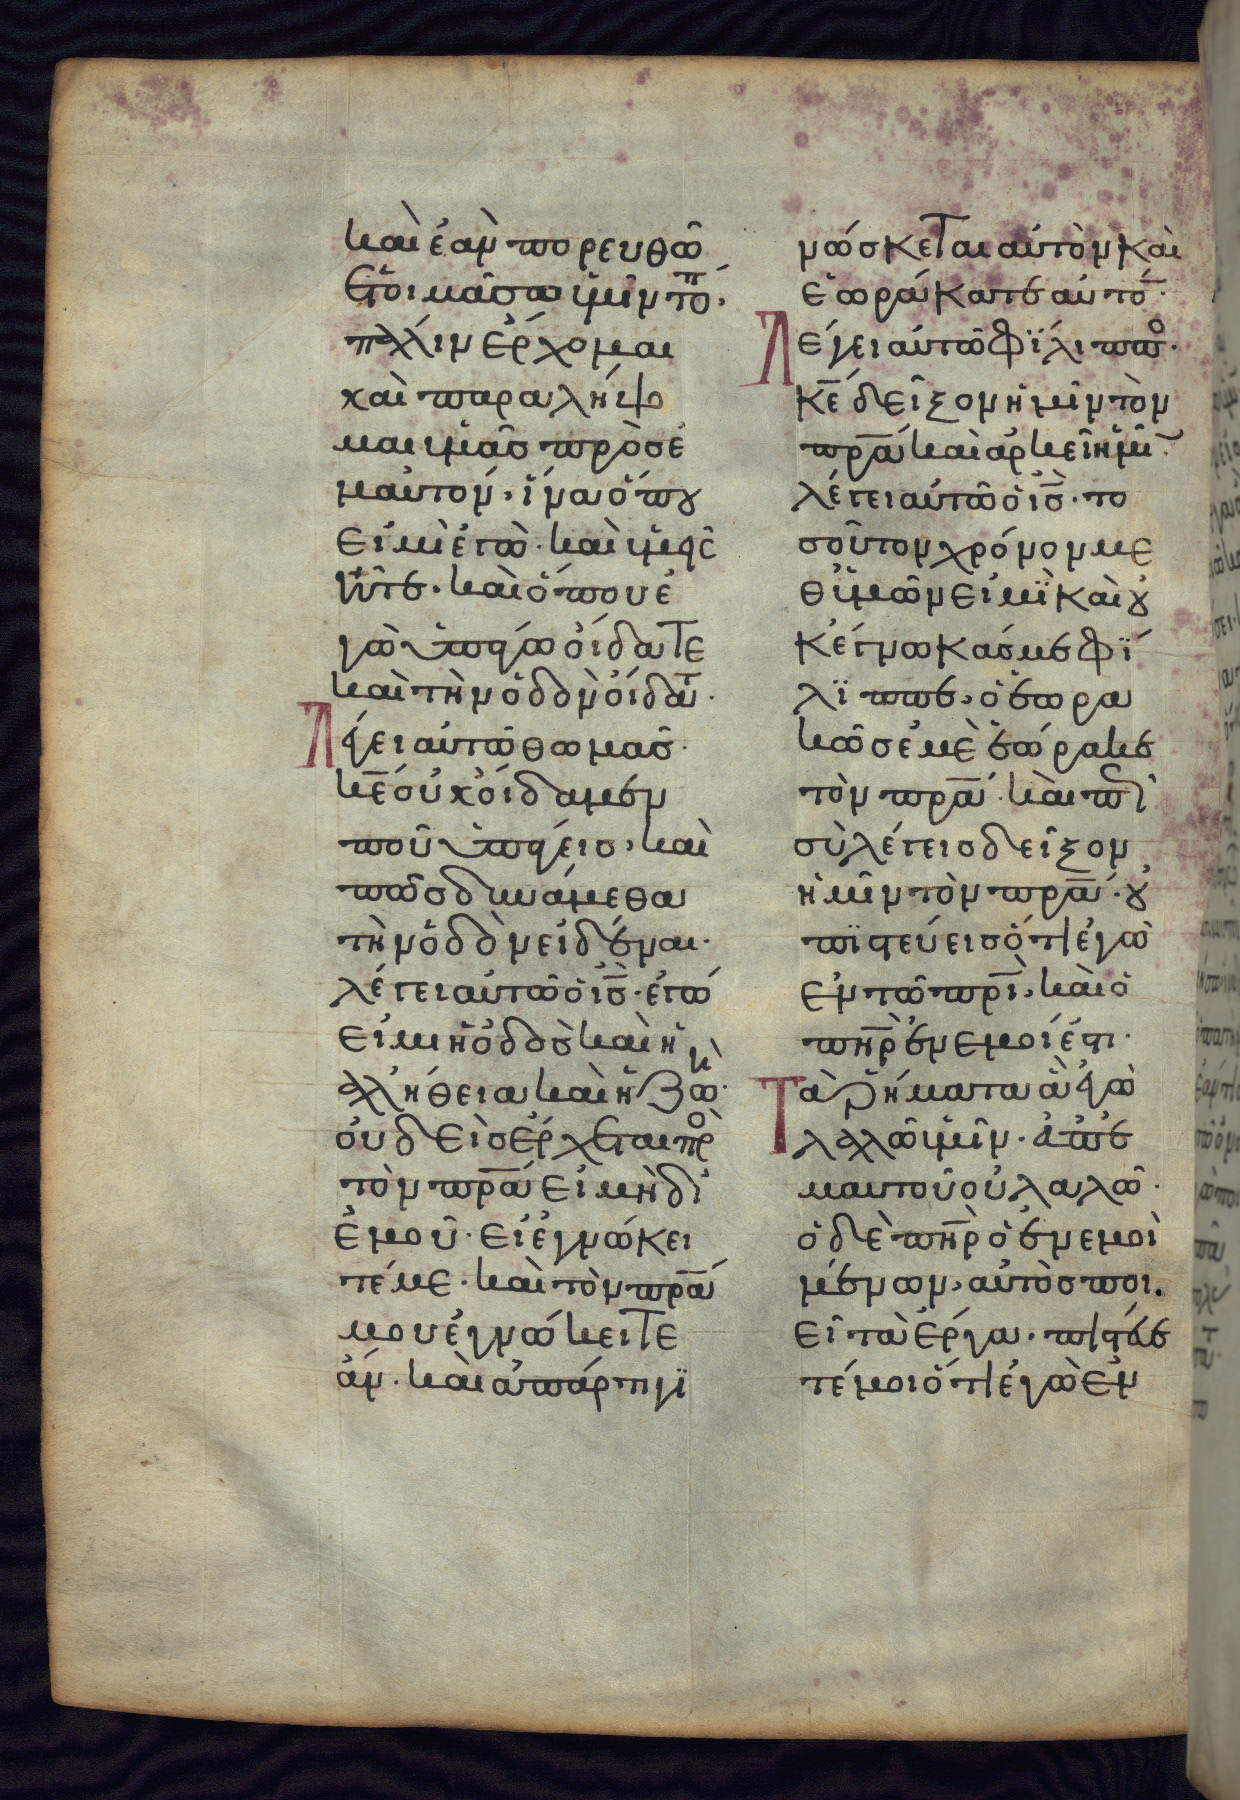 καὶ ἐὰν πορευθῶ
ἑτοιμᾶσαι ὑμῖν τόπ·
πάλιν ἔρχομαι
καὶ παραλήψο
μαι ὑμᾶς πρὸς ἐ
μαυτόν, ἵνα ὅπου
εἰμὶ ἐγὼ· καὶ ὑμεῖς
ἦτε· καὶ ὅπου ἐ
γὼ ὑπάγω οἴδατε
καὶ τὴν ὁδὸν οἴδατ·
Λέγει αὐτῷ θωμᾶς·
κε̅ οὐκ οἴδαμεν
ποῦ ὑπάγεις, καὶ
πῶς δυνάμεθα
τὴν ὁδὸν εἰδέναι·
λέγει αὐτῷ ὁ ι̅ς̅· ἐγώ
εἰμι ἡ ὁδὸς καὶ ἡ
ἀλήθεια καὶ ἡ ζωὴ·
οὐδεὶς ἔρχεται πρὸ
τὸν πρ̅α εἰ μὴ δι
ἐμοῦ· εἰ ἐγνώκει
τέ με· καὶ τὸν πρ̅α
μου ἐγνώκειτε
ἄν· καὶ ἀπάρτι γϊ
νώσκεται αὐτὸν καὶ
ἑωράκατε αὐτό̅·
Λέγει αὐτῷ Φϊλιππο·
κε̅ δεῖξον ἡμῖν τὸν
πρ̅α καὶ ἀρκεῖ ἡμῖ·
λέγει αὐτῷ ὁ ι̅ς̅· το
σοῦτον χρόνον με
θ ὑμῶν εἰμϊ καὶ οὐ
κ ἔγνωκάς με Φϊ
λϊππε, ὁ ἑωρα
κὼς ἐμὲ ἑώρακε
τὸν πρ̅α· καὶ πῶ
σὺ λέγεις δεῖξον
ἡμῖν τὸν πρ̅α· οὐ
πϊστεύεις ὅτι ἐγὼ
ἐν τῷ πρ̅ι, καὶ ὁ
πη̅ρ ἐν ἐμοί ἐστι·
Τὰ ῥήματα ἃ ἐγὼ
λαλῶ ὑμῖν· ἀπ ἐ
μαυτοῦ οὐ λαλῶ·
ὁ δὲ πη̅ρ ὁ ἐν ἐμοὶ
μένων, αὐτὸς ποι
εῖ τὰ ἔργα· πιστεύε
τέ μοι ὅτι ἐγὼ ἐν